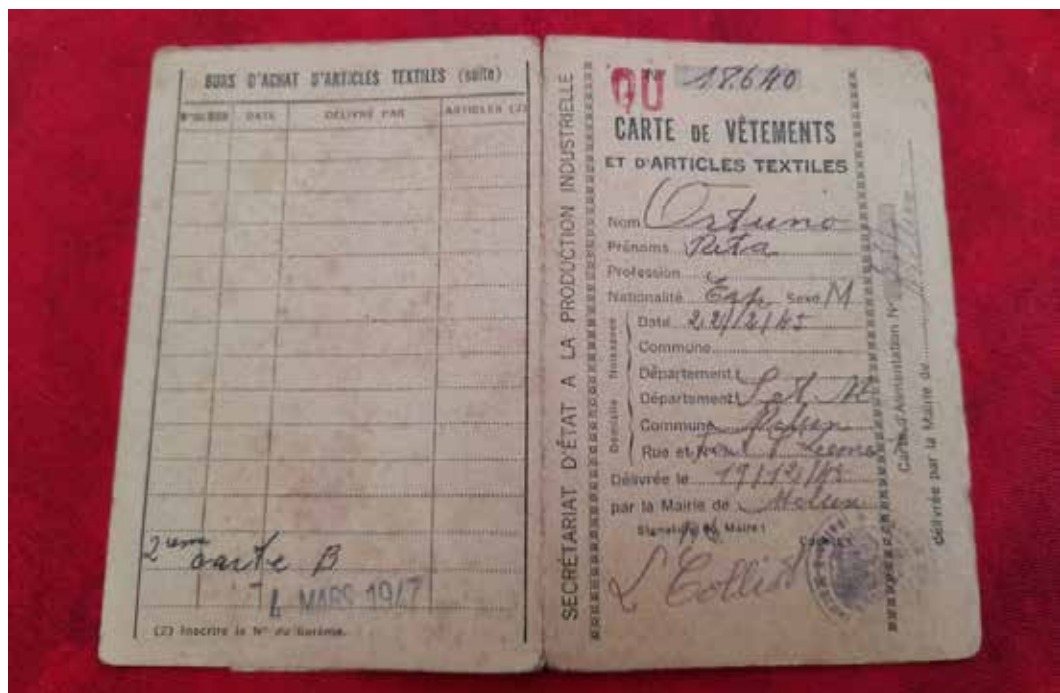 BONS D'ACHAT D'ARTICLES TEXTILES (suite)
DATE DÉLIVRÉ PAR ARTICLES (2)
2ème carte B
4 MARS 1947
(2) Inscrire le N° du barème.
SECRÉTARIAT D'ÉTAT A LA PRODUCTION INDUSTRIELLE
OU N° 18.640
CARTE DE VÊTEMENTS
ET D'ARTICLES TEXTILES
Nom Ostuno
Prénoms
Profession
Nationalité Esp Sexe M
Naissance
Date 22/2/45
Commune
Département
Domicile
Département S et M
Commune Melun
Rue et N°
Délivrée le 19/12/45
par la Mairie de Melun
Signature du Maire: Cachet:
L Collin
Carte d'Alimentation N°
délivrée par la Mairie de